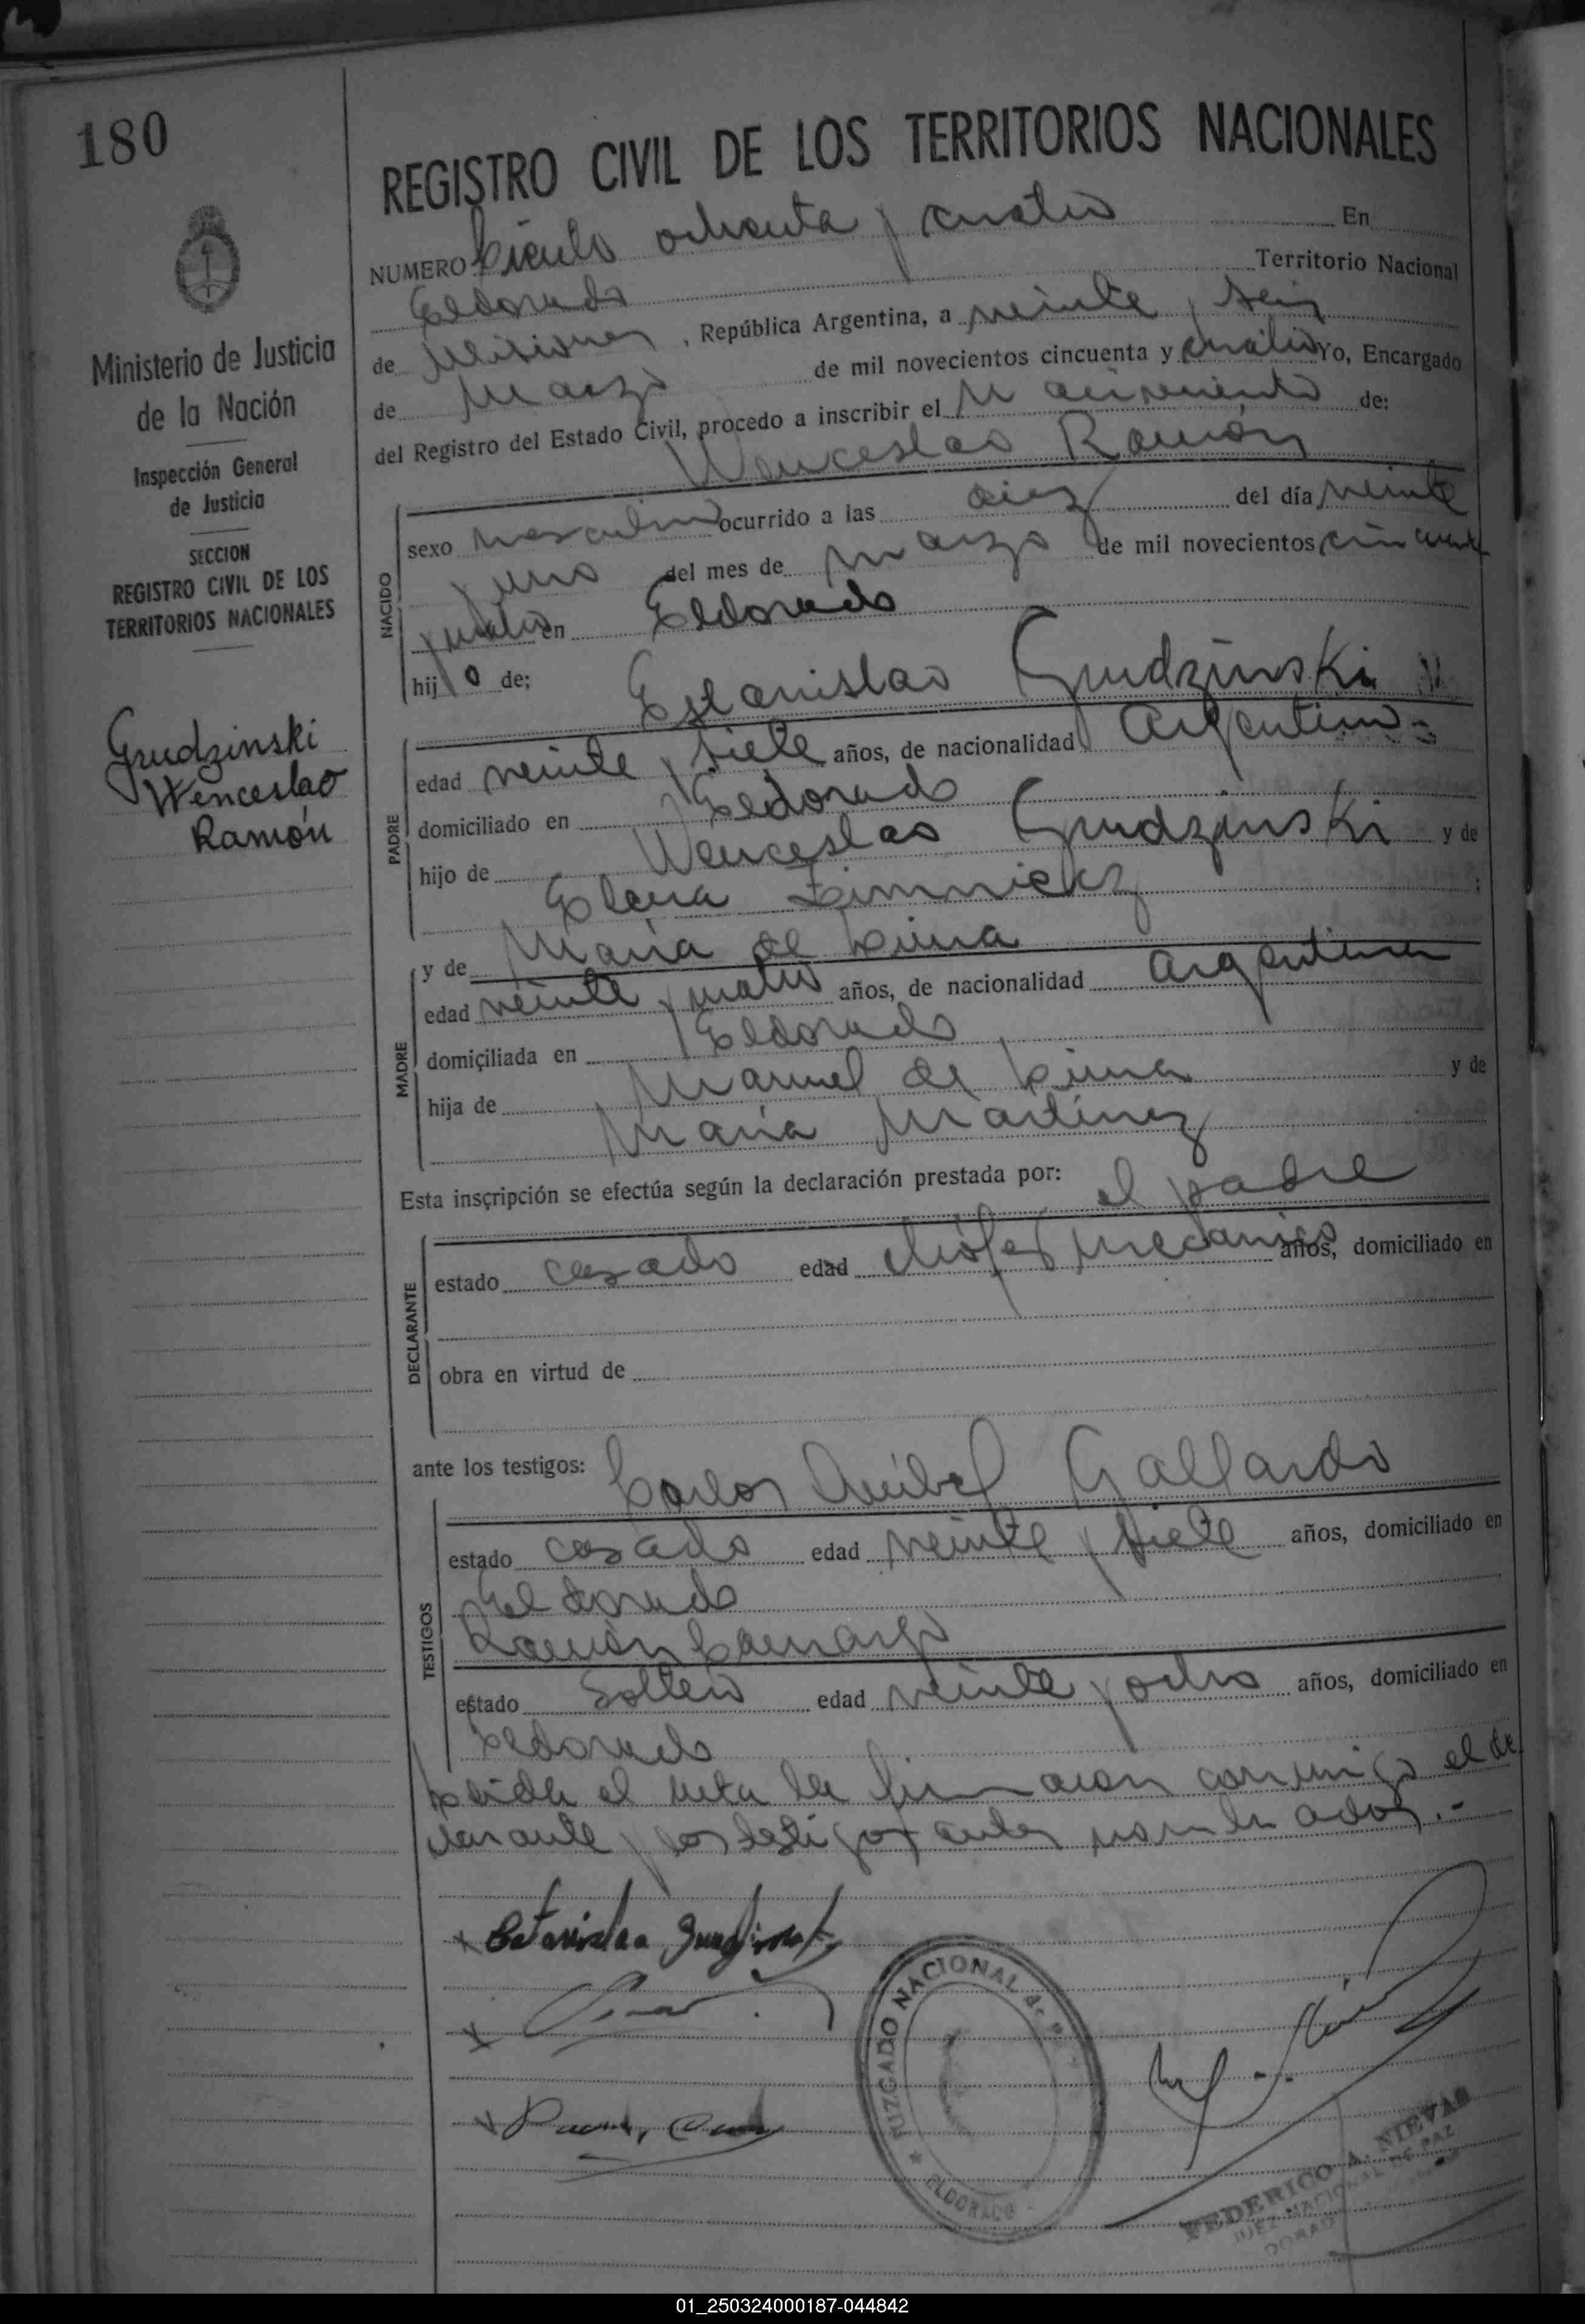 180
REGISTRO CIVIL DE LOS TERRITORIOS NACIONALES
NUMERO Ciento ochenta y cuatro En
Eldorado Territorio Nacional
de Misiones, República Argentina, a veinte y seis
de Marzo de mil novecientos cincuenta y cuatro Yo, Encargado
del Registro del Estado Civil, procedo a inscribir el Nacimiento de:
Wenceslao Ramón
Ministerio de Justicia
de la Nación
Inspección General
de Justicia
SECCION
REGISTRO CIVIL DE LOS
TERRITORIOS NACIONALES
Grudzinski
Wenceslao
Ramón
NACIDO
sexo masculino ocurrido a las diez del día veinte
y uno del mes de marzo de mil novecientos cincuenta
y cuatro en Eldorado
hijo de;
Estanislao Grudzinski
PADRE
edad veinte y siete años, de nacionalidad Argentino=
domiciliado en Eldorado
hijo de Wenceslao Grudzinski y de
Elena Zimnickz ;
y de María de Lima
MADRE
edad veinte y cuatro años, de nacionalidad argentina
domiciliada en Eldorado
hija de Manuel de Lima y de
María Martínez
Esta inscripción se efectúa según la declaración prestada por: el padre
DECLARANTE
estado casado edad chófer mecánico años, domiciliado en
obra en virtud de
ante los testigos: Carlos Anibal Gallardo
TESTIGOS
estado casado edad veinte y siete años, domiciliado en
Eldorado
Ramón Camargo
estado Soltero edad veinte y ocho años, domiciliado en
Eldorado
Leída el acta la firmaron conmigo el de
clarante y los testigos antes nombrados.-
x Estanislao Grudzinski
x
x
JUZGADO NACIONAL de
ELDORADO
FEDERICO A. NIEVAS
JUEZ NACIONAL DE PAZ
01_250324000187-044842